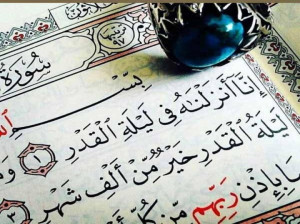 سُورَةُ
بِسْمِ
إِنَّآ أَنزَلْنَٰهُ فِى لَيْلَةِ ٱلْقَدْرِ ١
لَيْلَةُ ٱلْقَدْرِ خَيْرٌ مِّنْ أَلْفِ شَهْرٍ ٣
بِإِذْنِ رَبِّهِم مِّن كُلِّ